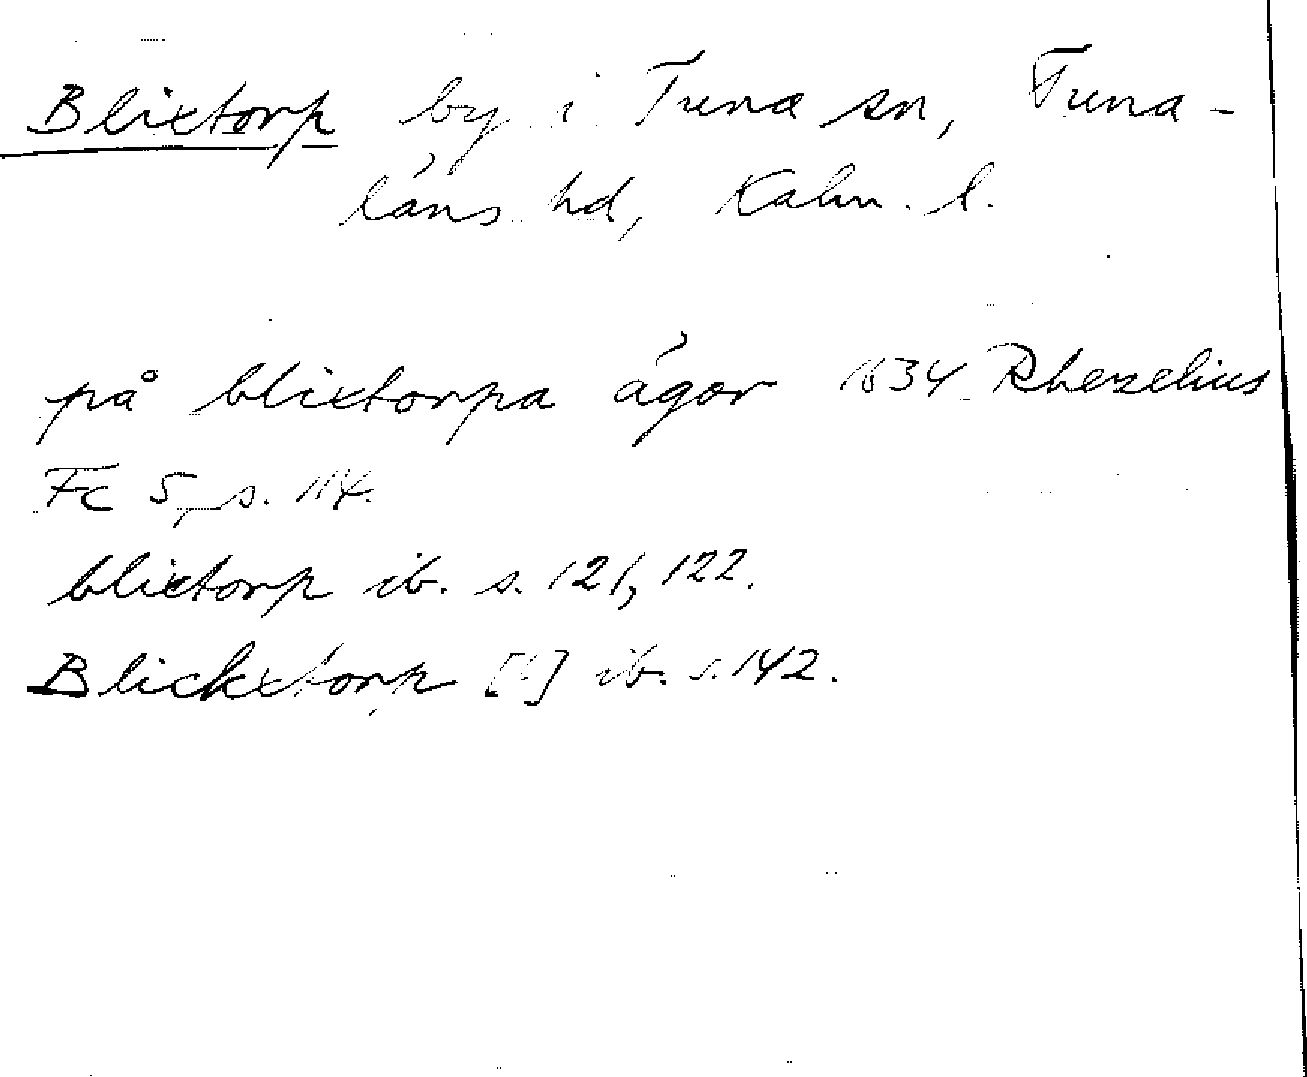 Blixtorp by i Tuna sn, Tuna-
läns hd, Kalm. l.
på blixtorpa ägor 1634 Rhezelius
Fc 5, s. 114.
blixtorp ib. s. 121, 122.
Blickxtorp [!] ib. s. 142.